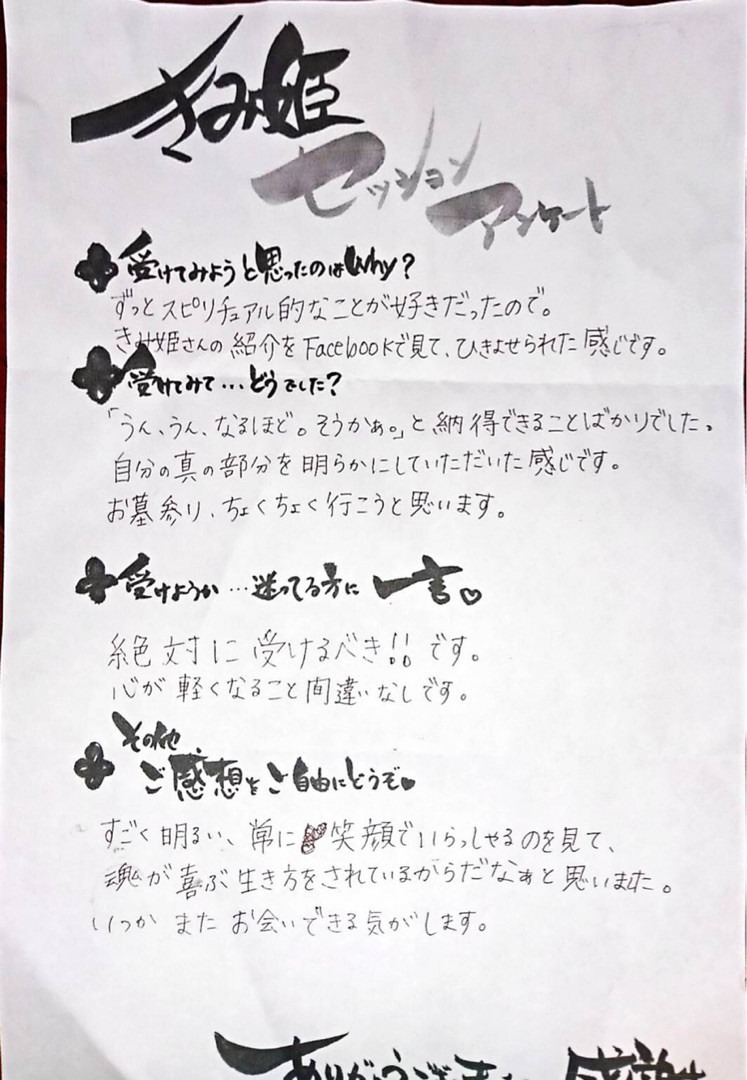 きみ姫
セッション
アンケート
受けてみようと思ったのはWhy?
ずっとスピリチュアル的なことが好きだったので。
きみ姫さんの紹介をFacebookで見て、ひきよせられた感じです。
受けてみて…どうでした?
「うん、うん、なるほど。そうかぁ。」と、納得できることばかりでした。
自分の真の部分を明らかにしていただいた感じです。
お墓参り、ちょくちょく行こうと思います。
受けようか…迷ってる方に一言♡
絶対に受けるべき!!です。
心が軽くなること間違いなしです。
その他、
ご感想をご自由にどうぞ♥
すごく明るい、常に笑顔でいらっしゃるのを見て、
魂が喜ぶ生き方をされているからだなぁと思いました。
いつかまたお会いできる気がします。
ありがとうございます